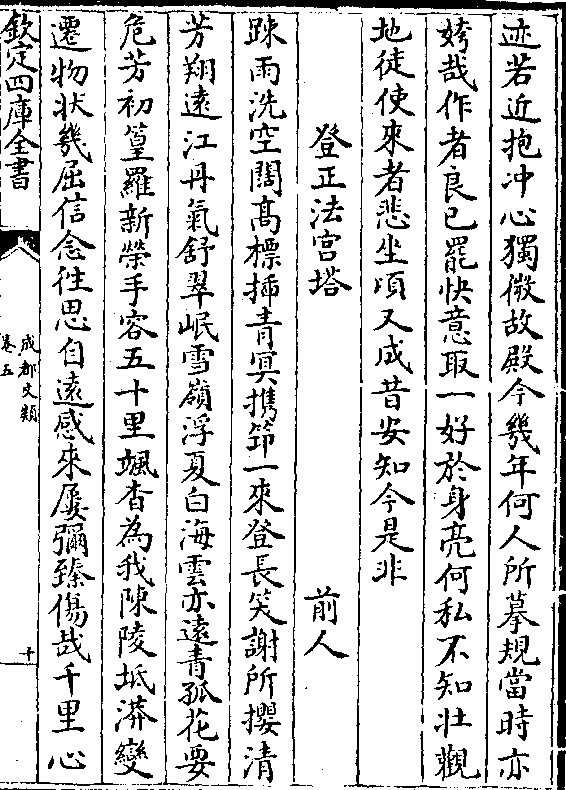 迹若近抱冲心獨微故殿今幾年何人所摹規當時亦
姱哉作者良已罷快意取一好於身亮何私不知壯觀
地徒使來者悲坐頃又成昔安知今是非
登正法宫塔 前人
踈雨洗空闊髙標揷青冥攜筇一來登長笑謝所攖清
芳翔逺江丹氣舒翠岷雪嶺浮夏白海雲亦逺青孤花要
危芳初篁羅新榮手容五十里颯杳為我陳陵坻漭變
遷物状幾屈信念徃思自逺感來屢彌臻傷哉千里心
欽定四庫全書
成都文類
卷五
十